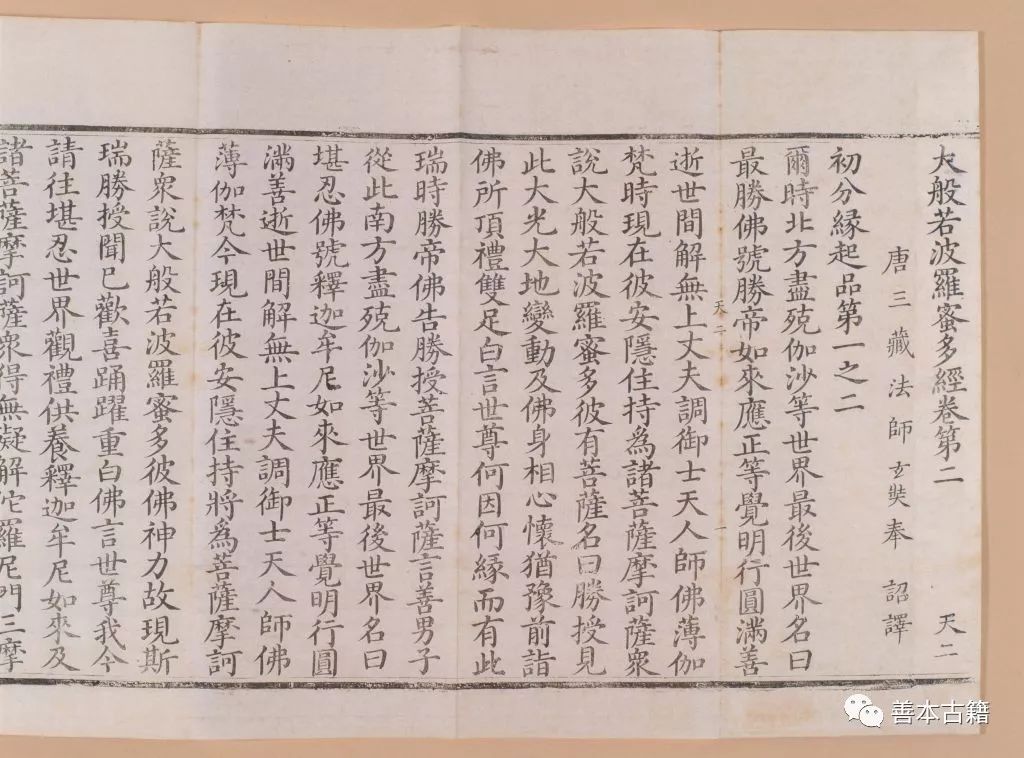 大般若波羅蜜多經卷第二 天二
唐三藏法師玄奘奉 詔譯
初分緣起品第一之二
爾時北方盡殑伽沙等世界最後世界名曰
最勝佛號勝帝如來應正等覺明行圓滿善
天二 一
逝世間解無上丈夫調御士天人師佛薄伽
梵時現在彼安隱住持為諸菩薩摩訶薩衆
說大般若波羅蜜多彼有菩薩名曰勝授見
此大光大地變動及佛身相心懷猶豫前詣
佛所頂禮雙足白言世尊何因何緣而有此
瑞時勝帝佛告勝授菩薩摩訶薩言善男子
從此南方盡殑伽沙等世界最後世界名曰
堪忍佛號釋迦牟尼如來應正等覺明行圓
滿善逝世間解無上丈夫調御士天人師佛
薄伽梵今現在彼安隱住持將為菩薩摩訶
薩衆說大般若波羅蜜多彼佛神力故現斯
瑞勝授聞已歡喜踊躍重白佛言世尊我今
請往堪忍世界觀禮供養釋迦牟尼如來及
諸菩薩摩訶薩衆得無礙解陀羅尼門三摩
善本古籍